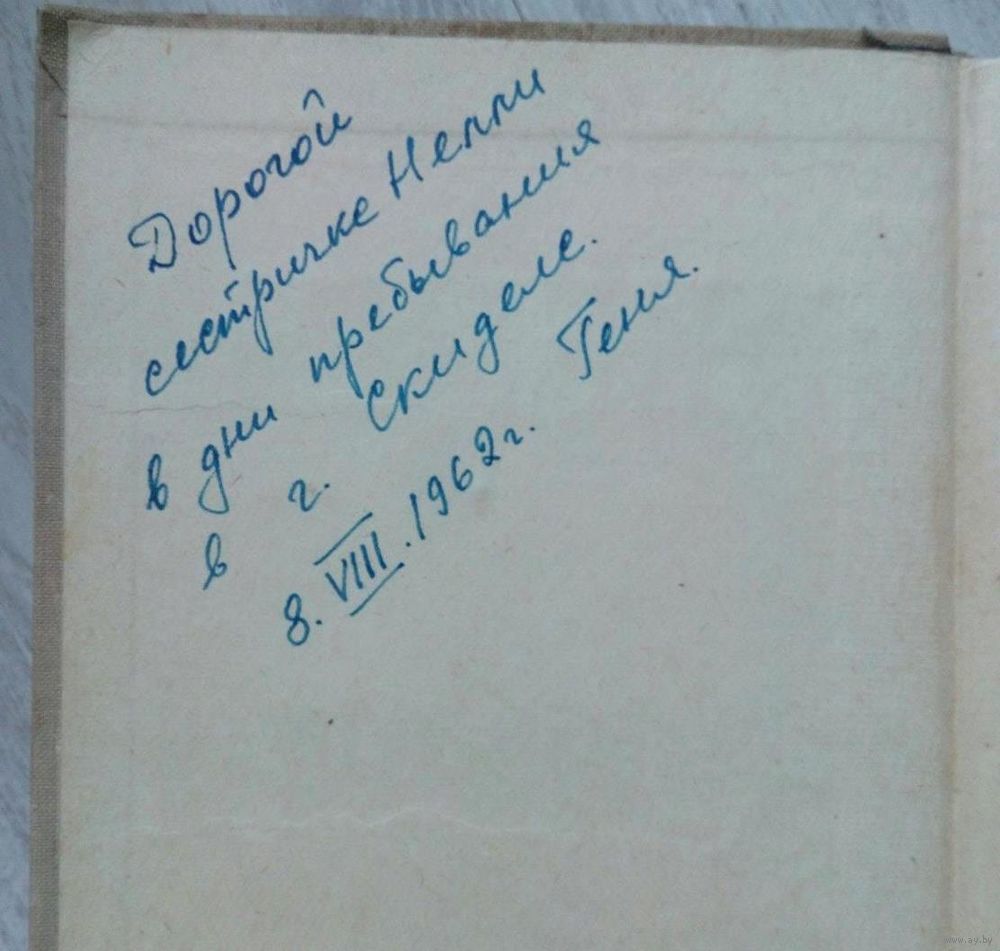 Дорогой
сестричке Нелли
в дни пребывания
в г. Скиделе.
8. VIII. 1962 г. Геня.
www.ay.by